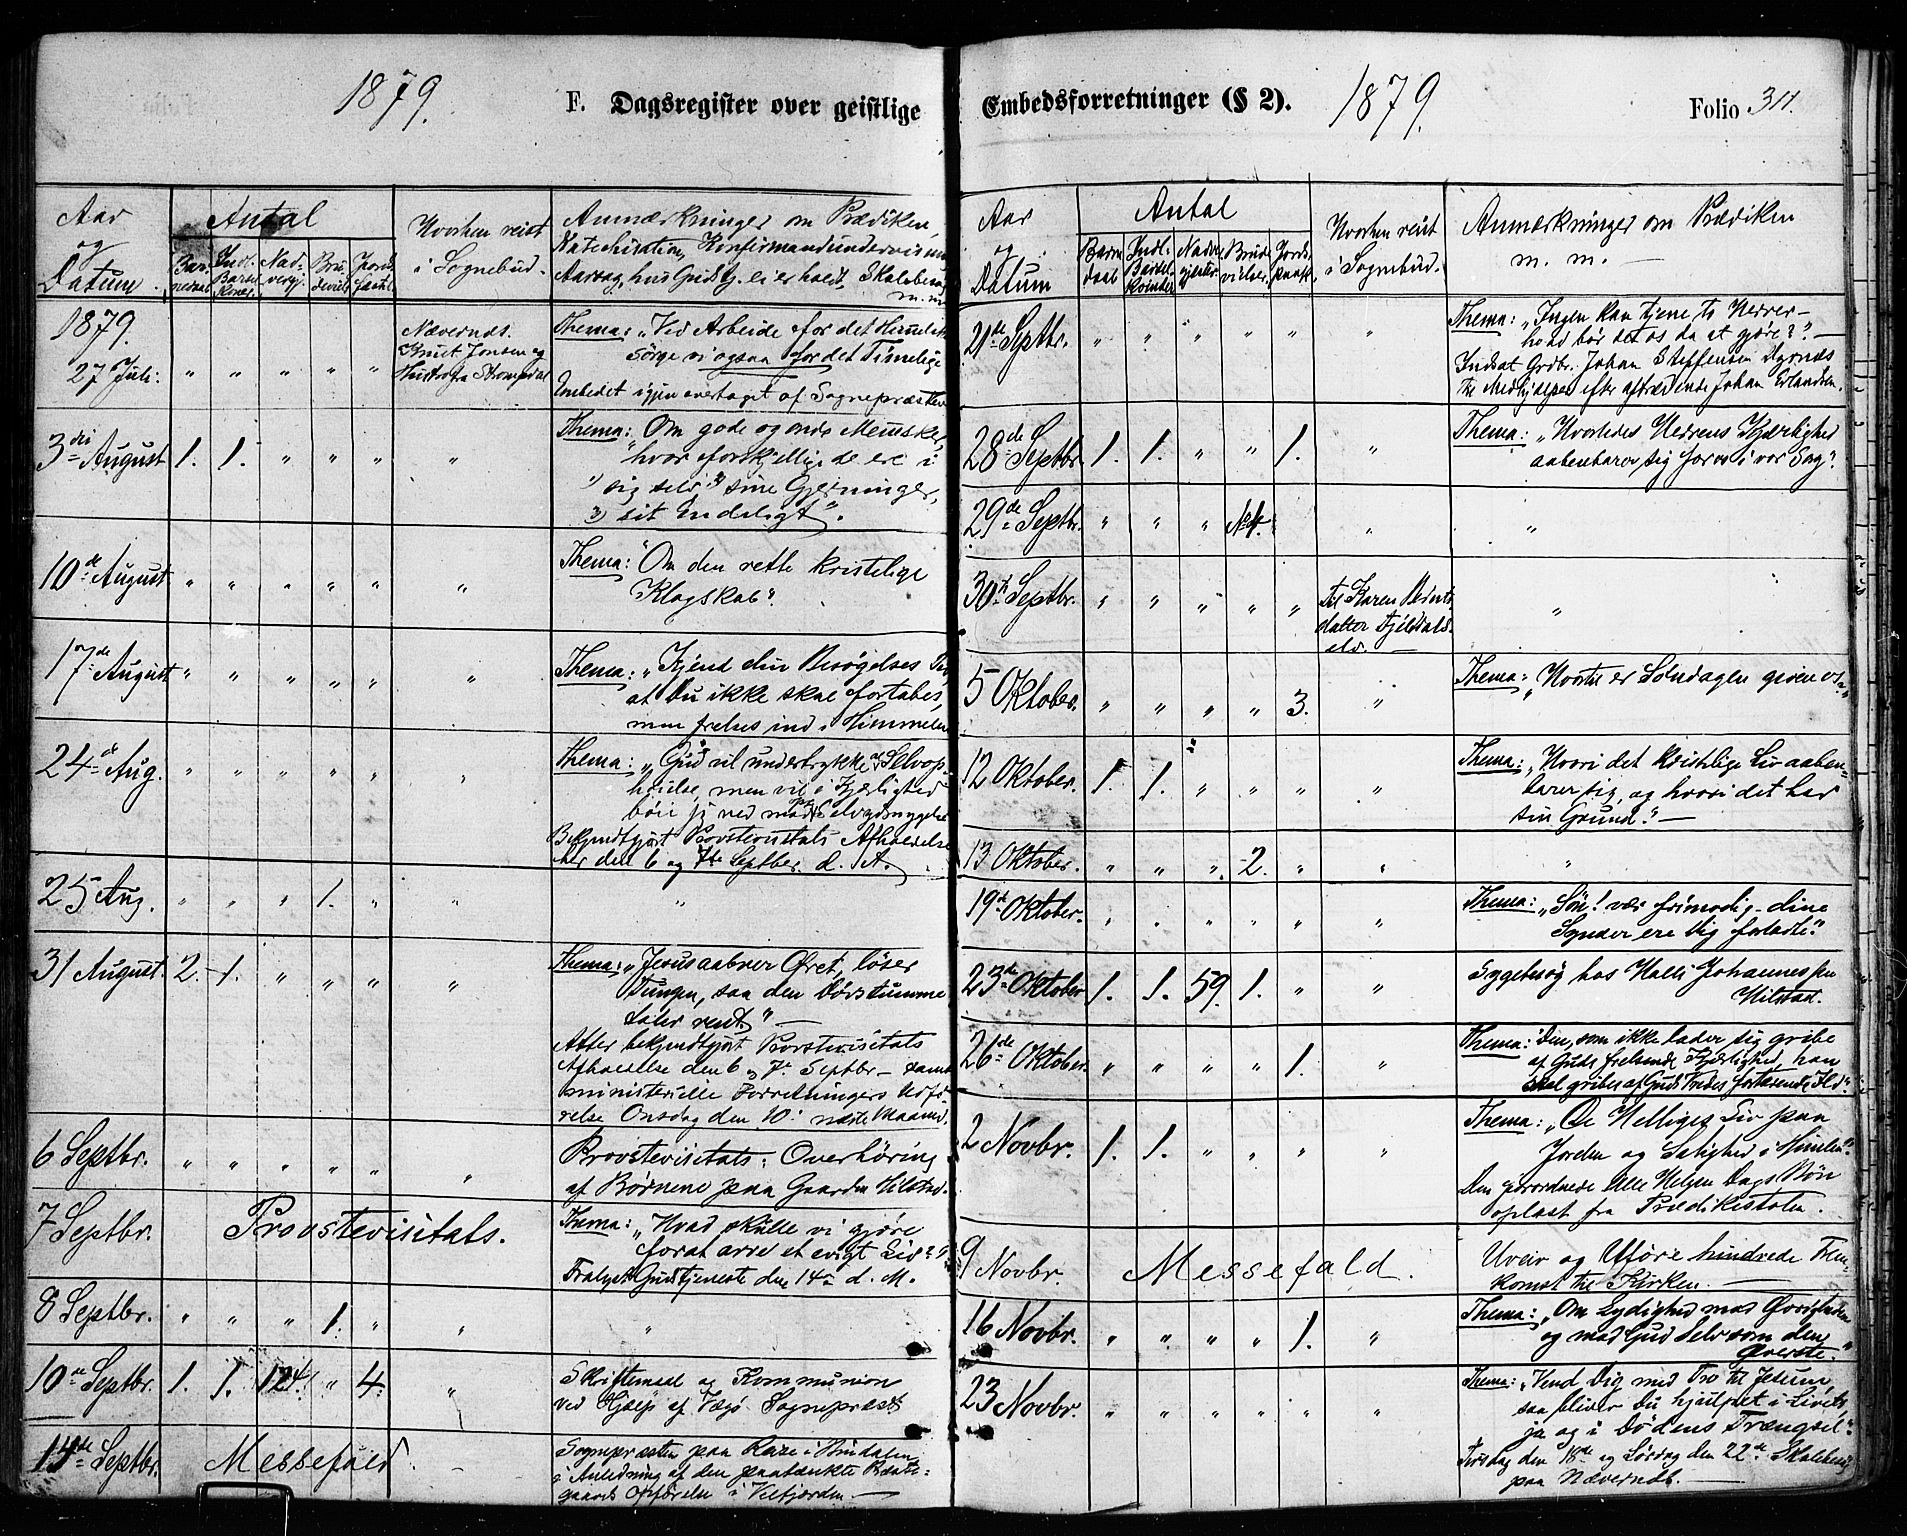 1879.
F. Dagsregister over geistlige
Aar og Datum
Antal
Hvorhen reist i Sognebud.
Anmærkninger om Prædiken,
Katechisation, Konfirmandundervisning
Aarsag, hvis Gudstj. ei er holdt, Skolebesøg
m. m.
1879.
27 Juli. " " " " "
Nævernds.
Knut Jonsen og
Hustro fra Strompdal
Thema: "Ved Arbeide for det Himmelske
Sørge vi ogsaa for det Timelige
Embedet igjen overtaget af Sognepræsten
3die August 1. 1. " " " "
Thema: "Om gode og onde Mennsker,
hvor forskjellige de ere i
1) sig selv 2) sine Gjerninger,
3) sit Endeligt".
10de August " " " " " "
Thema: "Om den rette kristelige
Klogskab".
17de August " " " " " "
Thema: "Kjend din Besøgelses Tid,
at Du ikke skal fortabes,
men frelses ind i Himmelen
24de Aug. " " " " " "
Thema: "Gud vil undertrykke al Selvop-
høielse, men vil i Kjærlighed
Bekjendtgjørt Provstevisitats Afholdelse
her den 6 og 7de Septbr. d. A.
25 Aug. " " " 1. " " "
31 August. 2. 1. " " " "
Thema: "Jesus aabner Øret, løser
Tungen, saa den Døvstumme
taler rent" —
Atter bekjendtgjort Provstevisitats
Afholdelse den 6 og 7de Septbr — samt
ministerielle Forretningers Udfø-
relse Onsdag den 10de næste Maaned.
6 Septbr. " " " " " "
Provstevisitats: Overhøring
af Børnene paa Gaarden Hilstad.
7 Septbr. Provstevisitats.
Thema: "Hvad skulle vi gjøre
for at arve et evigt Liv?"
Tillyst Gudstjeneste den 14de d. M.
8 Septbr. " " " 1. " " "
10de Septbr. 1. 1. 124. " 4. "
Skriftemaal og Kommunion
ved Hjælp af Vegø Sognepræst
14de Septbr. Messefald.
Sognepræsten paa Reise i Hundalen
i Anledning af den paatænkte Præste-
gaards Opførelse i Velfjorden —
Embedsforretninger (§ 2).
1879.
Folio 311.
Aar og Datum
Antal
Barne daab
Indl. Barsel kvinder
Nadv. gjester
Brude vielser.
Jords paak.
Hvorhen reist i Sognebud.
Anmærkninger om Prædiken
m. m. —
21de Septbr. " " " " " "
Thema: "Ingen kan tjene to Herrer —
hvad bør det os da at gjøre?" —
Indsat Grdbr. Johan Steffensen Dyrnæs
til Medhjælper efter aftrædende Johan Erlandsen.
28de Septbr. 1. 1. " " 1. "
Thema: "Hvorledes Herrens Kjærlighed
aabenbarer sig for os i vor Sorg".
29de Septbr. " " " " "
30te Septbr. " " " " "
Til Karen Bernts
datter Fjeldals-
elv. —
"
5 Oktober. " " " " 3. "
Thema: "Hvortil er Søndagen given os"
12 Oktober. 1. 1. " " " "
Thema: "Hvori det kristelige Liv aaben-
barer sig, og hvori det har
sin Grund". —
13 Oktober. " " " 2. " " "
19de Oktober. " " " " " "
Thema: "Søn! vær frimodig — dine
Synder ere dig forladte".
23de Oktober 1. 1. 59. 1. " "
Sygebesøg hos Halli Johannessen
Hilstad.
26de Oktober. " " " " 1. "
Thema: "Den, som ikke lader sig gribe
af Guds frelsende Kjærlighed, han
skal gribes af Guds Vredes fortærende Ild".
2 Novbr. 1. 1. " " " "
Thema: "De Helliges Liv paa
Jorden og Salighed i Himlen".
Den forordnede Alle Helgen Dags Bøn
oplæst fra Prædikestolen.
9 Novbr. Messefald.
Uveir og Uføre hindrede Frem-
komst til Kirken. —
16 Novbr. " " " " 1. "
Thema: "Om Lydighed mod Øvrigheden
og mod Gud selv som den
Øverste."
23 Novbr. " " " " " "
Thema: "Vend Dig med Tro til Jesum,
saa bliver Du hjulpet i Livets,
ja og i Dødens Trængsel".
Tirsdag den 18de og Lørdag den 22de Skolebesøg
paa Nævernds. —